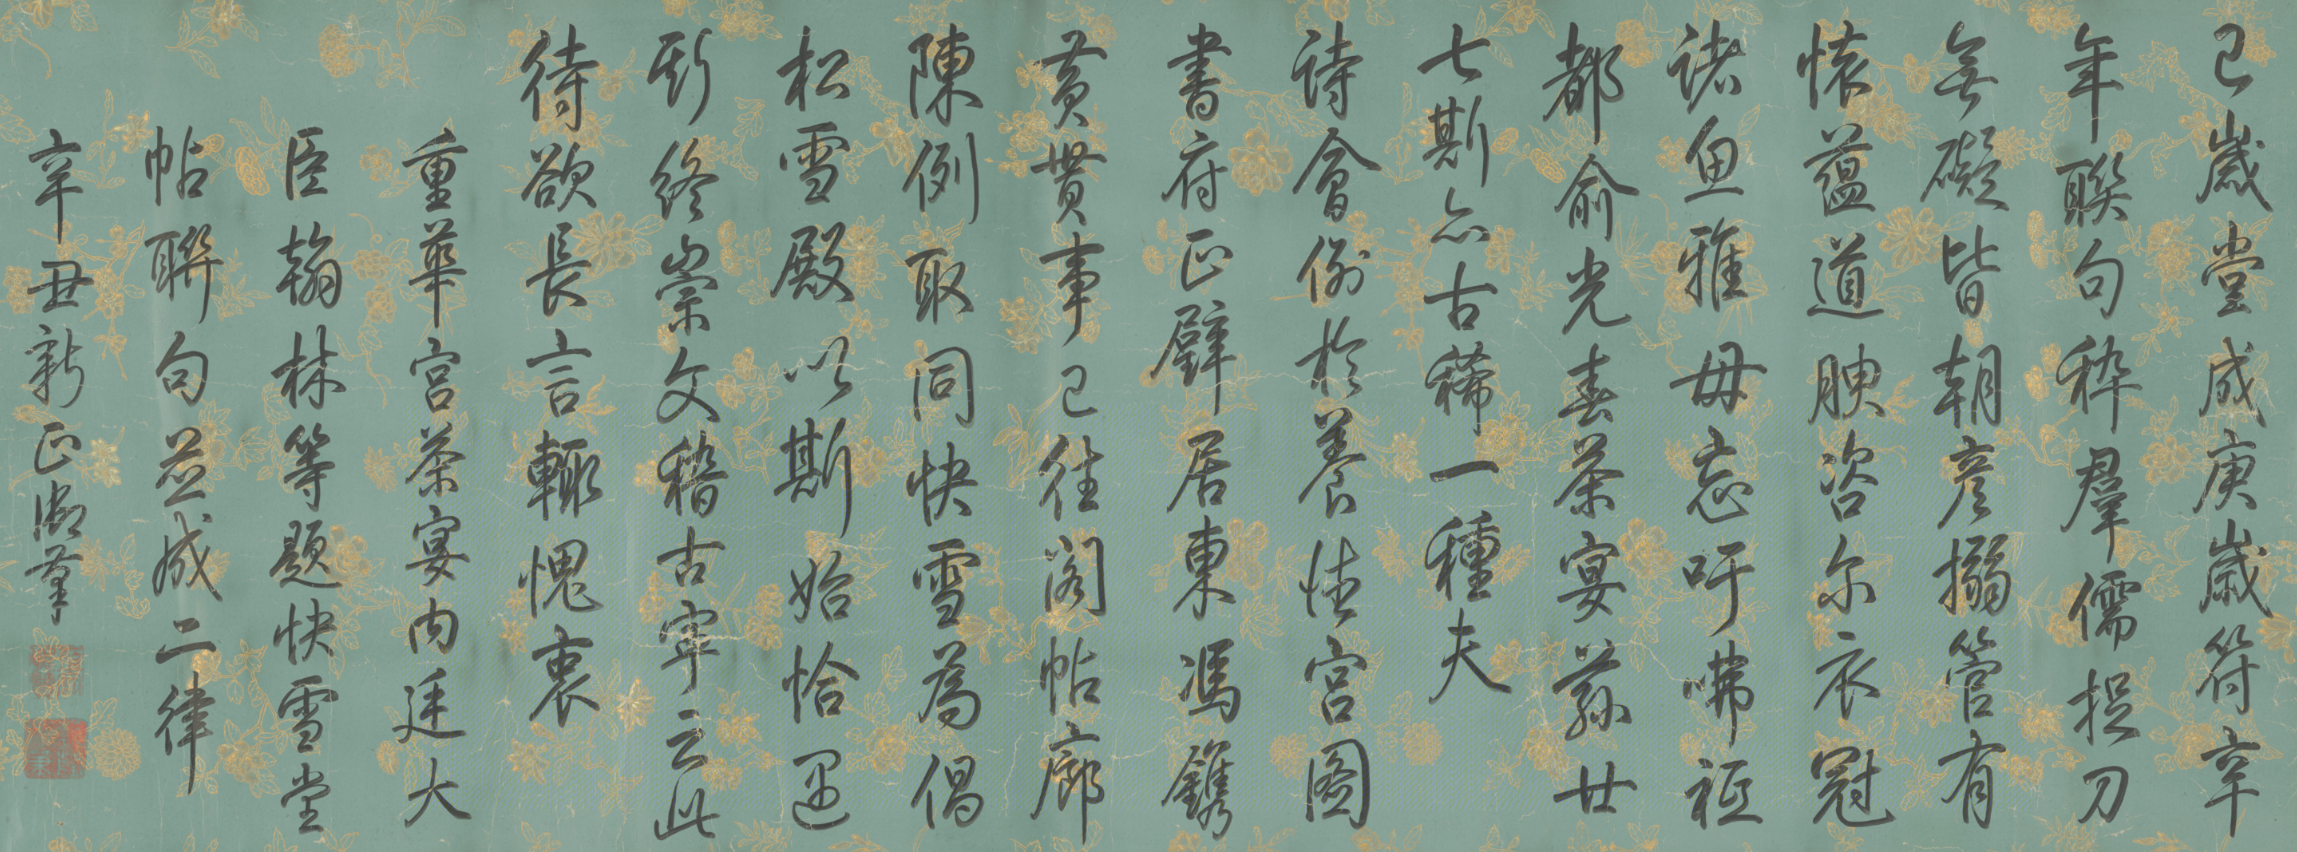 己歲堂成庚歲符辛
年聯句稡羣儒捉刀
無礙皆朝彥搦管有
懷蘊道腴咨尔衣冠
諸魚雅毋忘吁咈祗
都俞先春茶宴茲廿
七斯亦古稀一種夫
詩會例於養性宮圖
書府正壁居東馮鐫
黃貫事已往閣帖廊
陳例取同快雪為倡
松雪殿以斯始恰迴
斯終崇文稽古寧云此
待欲長言輒愧衷
重華宮茶宴內廷大
臣翰林等題快雪堂
帖聯句並成二律
辛丑新正御筆